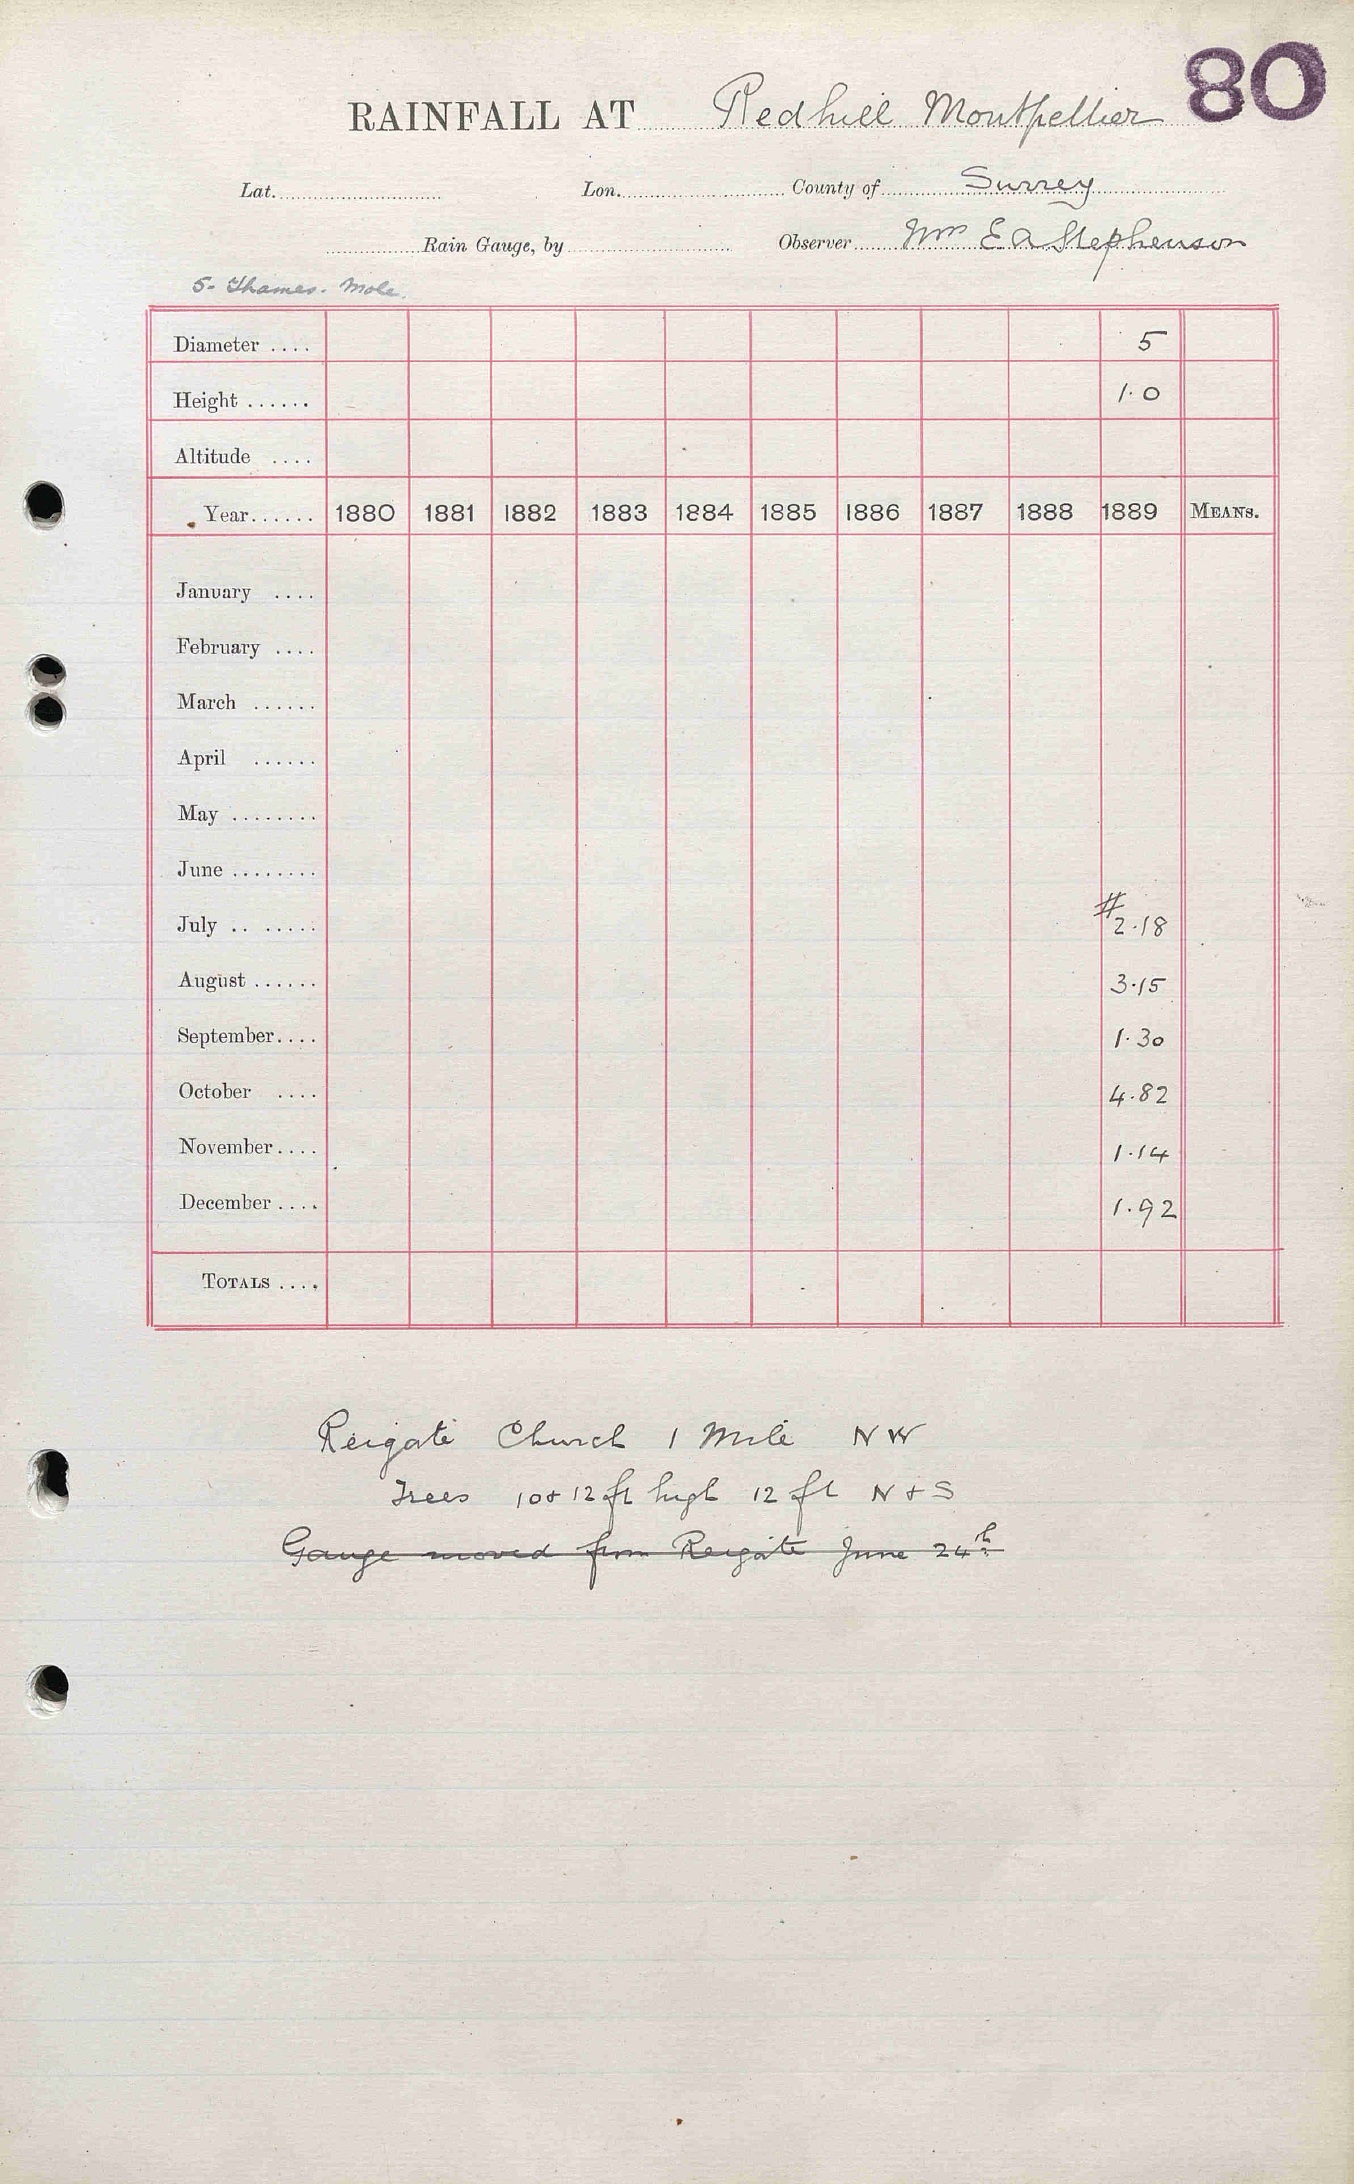 80
RAINFALL AT Redhill Montpellier
Lat. Lon. County of Surrey
Rain Gauge, by Observer Mrs E A Stephenson
5- Thames. Mole.
Diameter .... 5
Height ...... 1.0
Altitude ....
Year...... 1880 1881 1882 1883 1884 1885 1886 1887 1888 1889 MEANS.
January ....
February ....
March ......
April ......
May ........
June ........
July .. ..... # 2.18
August ...... 3.15
September.... 1.30
October .... 4.82
November.... 1.14
December.... 1.92
TOTALS ....
Reigate Church 1 Mile NW
Trees 10 & 12 ft high 12 ft N & S
Gauge moved from Reigate June 24th